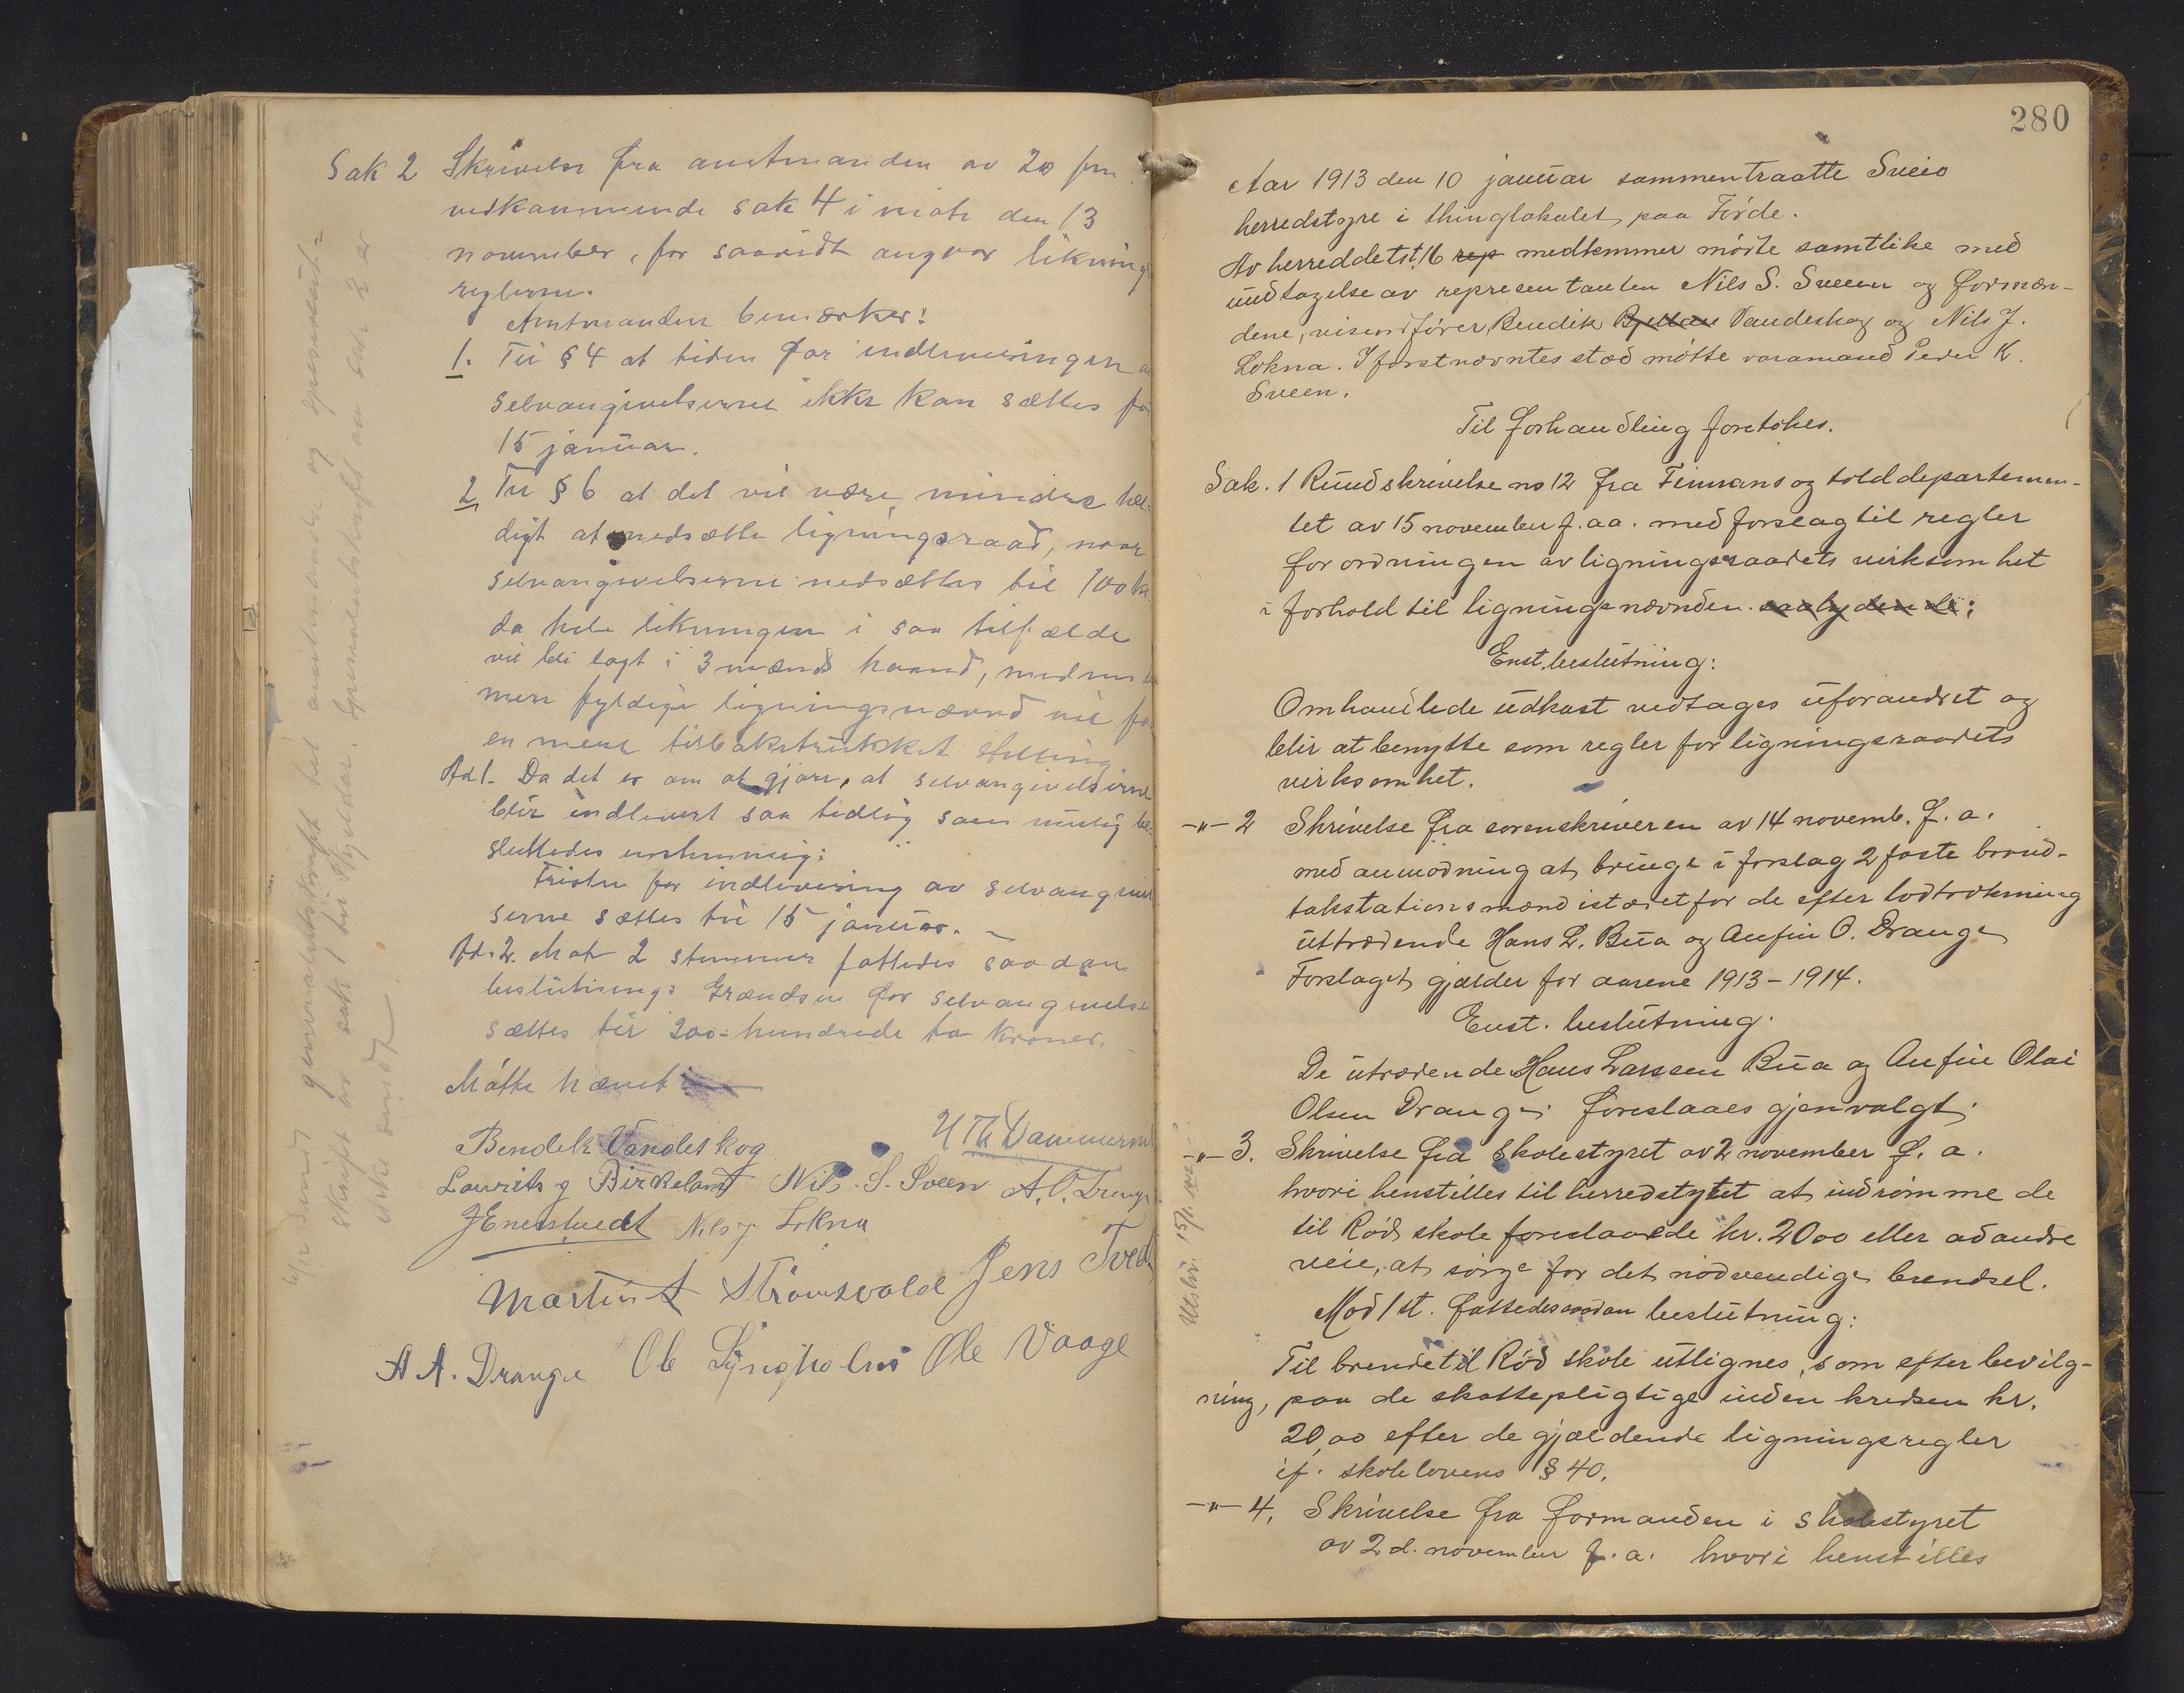 Sak 2 Skrivelse fra amtmanden av 20 fm
vedkommende sak 4 i møte den 13
november, for saavidt angaar likning
reglerne.
Amtmanden bemærker:
1. Til § 4 at tiden for indleveringen a
selvangivelserne ikke kan sættes fo
15 januar.
2. Til § 6 at det vil være mindre hel-
digt at nedsætte ligningsraad, naar
selvangivelserne nedsættes til 100 kr.
da hele likningen i saa tilfælde
vil bli lagt i 3 mænds haand, medens
men fyldige ligningsnævnd vil fa
en mere tilbaketrukket stilling
Ad 1. Da det er om at gjøre, at selvangivelserne
blir indlevert saa tidlig som mulig be-
sluttedes enstemmig:
Fristen for indlevering av selvangivel
serne sættes til 15 januar. –
Ad. 2. Mot 2 stemmer fattedes saadan
beslutning: Grændsen for selvangivelse
sættes til 200 = hundrede to kroner.
Møtte hævet
H Th Dammersn
Bendik Vandeskog
Laurits g Birkeland Nils S. Sveen A. O. Drange
J Enerstvedt Nils J Lokna
Martin A Strømsvold Jens Tved
A A. Drange Ole Lyngholm Ole Vaage
6/12 sendt generalutskrift til amtmanden og spesialut-
skrift av sak 1 til Skjoldar. Generalutskrift av sak 2 er
ikke sendt
280
Aar 1913 den 10 januar sammentraatte Sveio
herredstyre i thinglokalet paa Førde.
Av herreddetst. 16 rep medlemmer møtte samtlike med
undtagelse av representanten Nils S. Sveen og formæn-
dene, viseordfører Bendik Bjellan Vandeskog og Nils J.
Lokna. I førstnævntes sted møtte varamand Peder K.
Sveen.
Til forhandling foretokes.
Sak. 1 Rundskrivelse no 12 fra Finnans og tolddepartemen-
tet av 15 november f. aa. med forslag til regler
for ordningen av ligningsraadets virksomhet
i forhold til ligningsnævnden saalydende:
Enst. beslutning:
Omhandlede udkast vedtages uforandret og
blir at benytte som regler for ligningsraadets
virksomhet.
–"– 2 Skrivelse fra sorenskriveren av 14 novemb. f. a.
med anmodning at bringe i forslag 2 faste brand-
takstationsmænd istædetfor de efter lodtrækning
uttrædende Hans L. Bua og Anfin O. Drange
Forslaget gjælder for aarene 1913 – 1914.
Enst. beslutning:
De utrædende Hans Larssen Bua og Anfin Olai
Olsen Drange foreslaaes gjenvalgt.
–"– 3. Skrivelse fra skolestyret av 2 november f. a.
hvori henstilles til herredstyret at indrømme de
til Rød skole foreslaaede kr. 20 00 eller ad andre
veie, at sørge for det nødvendige brendsel.
Mod 1 st. fattedes saadan beslutning:
Til brende til Rød skole utlignes, som efter bevilg-
ning, paa de skattepligtige inden kredsen kr.
20,00 efter de gjældende ligningsregler
jf. skolelovens § 40.
–"– 4. Skrivelse fra formanden i skolestyret
av 2 d. november f. a. hvori henstilles